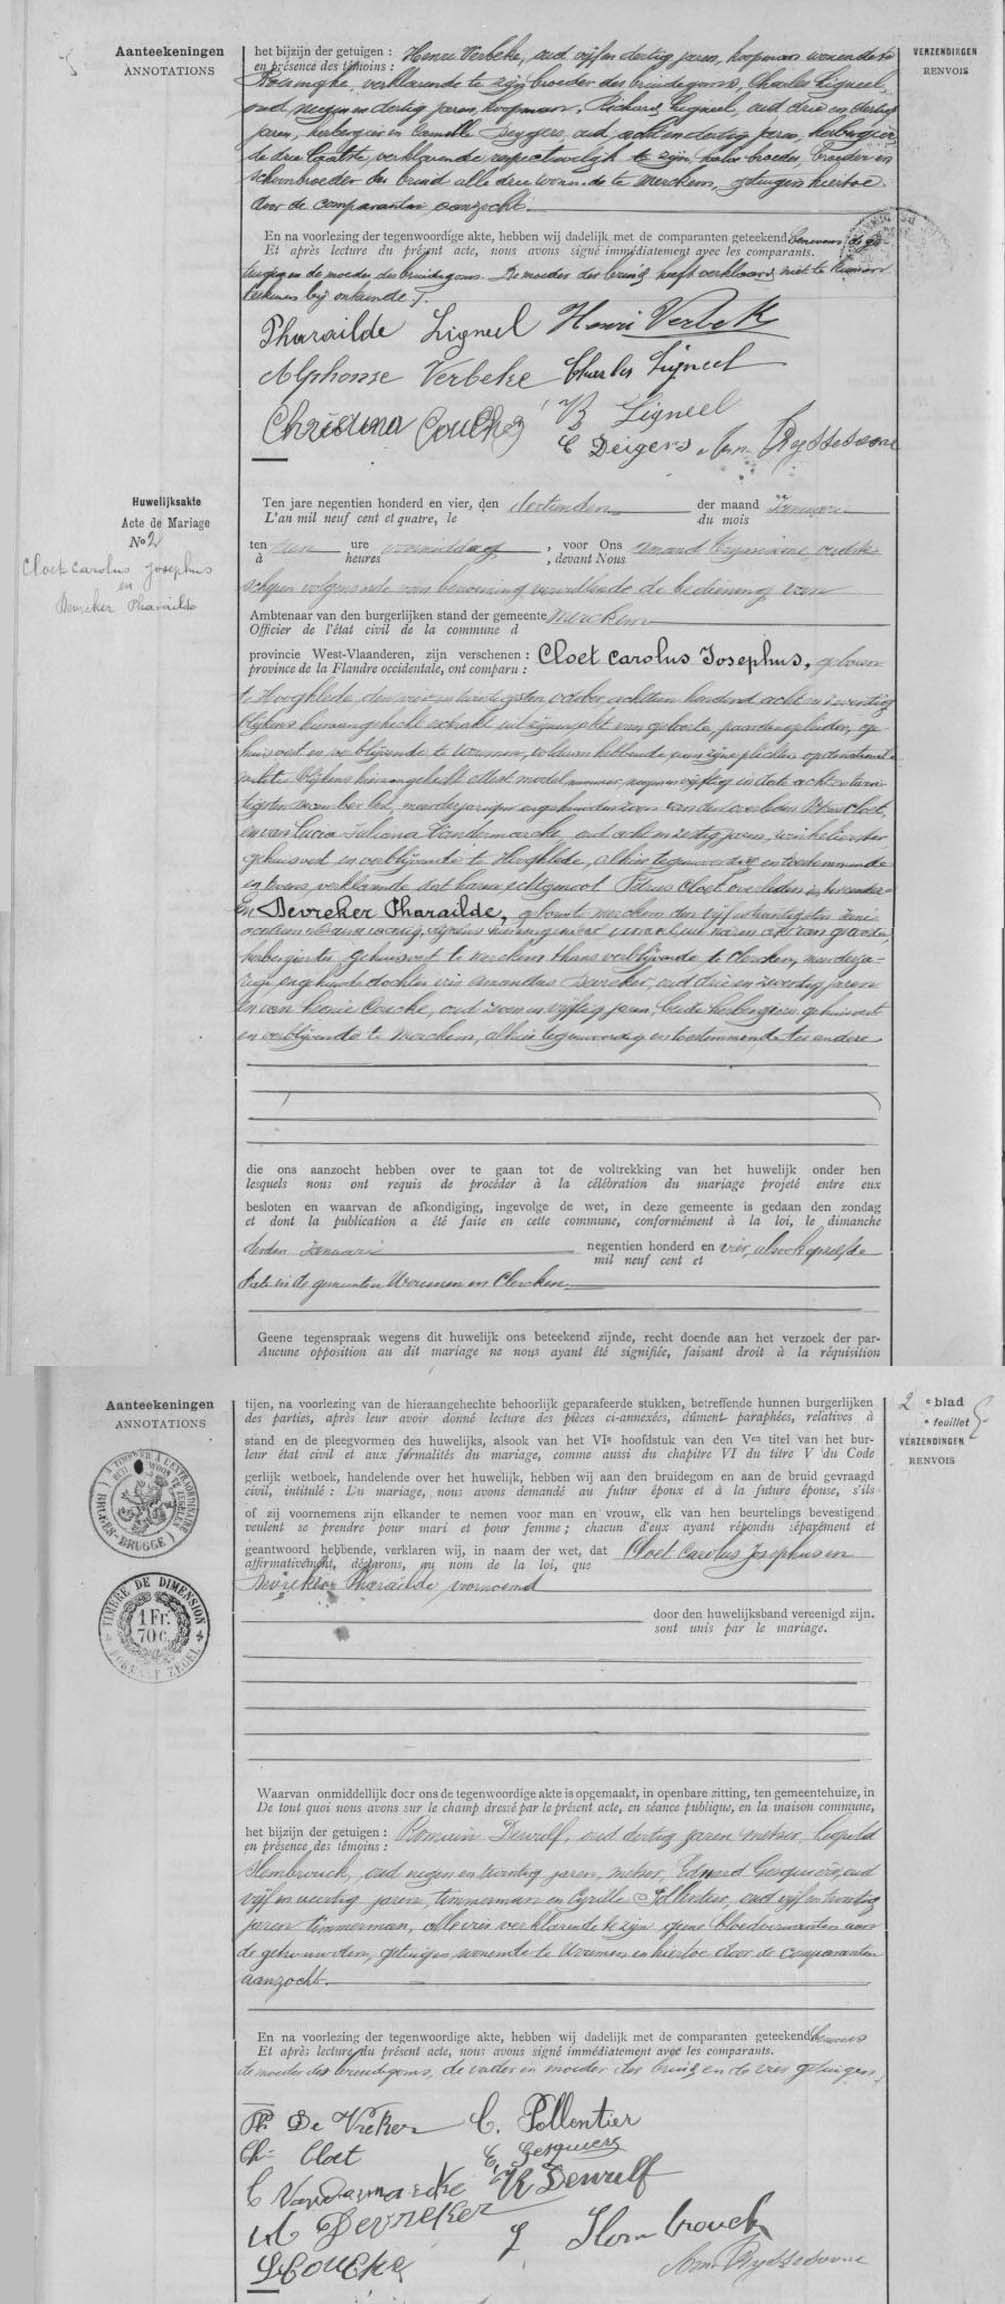 Aanteekeningen
ANNOTATIONS
VERZENDINGEN
RENVOIS
het bijzijn der getuigen : Henri Verbeke, oud vijf en dertig jaren, koopman wonende te
en présence des témoins :
verklarende te zijn broeder des bruidegoms, Charles Ligneel,
oud negen en dertig jaren, koopman, Richard Ligneel, oud drie en dertig
jaren, herbergier en Camille Deygers oud acht en dertig jaren, herbergier,
de drie laatste verklarende respectievelijk te zijn halve broeder, broeder en
schoonbroeder der bruid alle drie wonende te Merckem, getuigen hiertoe
door de comparanten aanzocht.
En na voorlezing der tegenwoordige akte, hebben wij dadelijk met de comparanten geteekend benevens de ge-
Et après lecture du présent acte, nous avons signé immédiatement avec les comparants.
tuigen en de moeder des bruidegoms. De moeder der bruid heeft verklaard niet te kunnen
teekenen bij onkunde.
Pharaïlde Ligneel Henri Verbeke
Alphonse Verbeke Charles Ligneel
Christina Couchez R Ligneel
C Deigers Am. Ryssesoone
Huwelijksakte
Acte de Mariage
No 2
Cloet Carolus Josephus
en
Devreker Pharaïlde
Ten jare negentien honderd en vier, den dertienden der maand Januari
L'an mil neuf cent et quatre, le du mois
ten tien ure voormiddag , voor Ons Amand Ryssesoone oudste
à heures , devant Nous
schepen volgens van benoeming vervullende de bediening van
Ambtenaar van den burgerlijken stand der gemeente Merckem
Officier de l'état civil de la commune d
provincie West-Vlaanderen, zijn verschenen : Cloet Carolus Josephus, geboren
province de la Flandre occidentale, ont comparu :
te Hooghlede den vier en twintigsten october achttien honderd acht en zeventig
blijkens hieraangehecht extrakt uit zijnen akt van geboorte, paardengeleider, ge-
huisvest en verblijvende te Woumen, voldaan hebbende aan zijne plichten op de nationale
militie blijkens hieraangehecht attest model nummer negen en vijftig in date acht en twin-
tigsten december lest, meerderjarigen ongehuwden zoon van den overleden Petrus Cloet,
en van Lucia Juliana Vandermarcke, oud acht en zestig jaren, winkelierster
gehuisvest en verblijvende te Hooghlede, alhier tegenwoordig en toestemmende
en tevens verklarende dat haren echtgenoot Petrus Cloet overleden is
En Devreker Pharaïlde, geboren te Merckem den vijf en twintigsten Juni
achttien honderd blijkens hieraangehecht extrakt uit haren akt van geboorte,
herbergierster gehuisvest te Merckem thans verblijvende te Clercken, meerderja-
rige ongehuwde dochter van Amandus Devreker, oud drie en zeventig jaren
en van Leonie Coucke, oud zeven en vijftig jaren, beide herbergiers gehuisvest
en verblijvende te Merckem, alhier tegenwoordig en toestemmende ter andere
die ons aanzocht hebben over te gaan tot de voltrekking van het huwelijk onder hen
lesquels nous ont requis de procéder à la célébration du mariage projeté entre eux
besloten en waarvan de afkondiging, ingevolge de wet, in deze gemeente is gedaan den zondag
et dont la publication a été faite en cette commune, conformément à la loi, le dimanche
derden Januari negentien honderd en vier, alsook op zelfde
mil neuf cent et
date in de gemeenten Woumen en Clercken
Geene tegenspraak wegens dit huwelijk ons beteekend zijnde, recht doende aan het verzoek der par-
Aucune opposition au dit mariage ne nous ayant été signifiée, faisant droit à la réquisition
Aanteekeningen
ANNOTATIONS
2 e blad
e feuillet
VERZENDINGEN
RENVOIS
tijen, na voorlezing van de hieraangehechte behoorlijk geparafeerde stukken, betreffende hunnen burgerlijken
des parties, après leur avoir donné lecture des pièces ci-annexées, dûment paraphées, relatives à
stand en de pleegvormen des huwelijks, alsook van het VIe hoofdstuk van den Ven titel van het bur-
leur état civil et aux formalités du mariage, comme aussi du chapitre VI du titre V du Code
gerlijk wetboek, handelende over het huwelijk, hebben wij aan den bruidegom en aan de bruid gevraagd
civil, intitulé : Du mariage, nous avons demandé au futur époux et à la future épouse, s'ils
of zij voornemens zijn elkander te nemen voor man en vrouw, elk van hen beurtelings bevestigend
veulent se prendre pour mari et pour femme ; chacun d'eux ayant répondu séparément et
geantwoord hebbende, verklaren wij, in naam der wet, dat Cloet Carolus Josephus en
affirmativement, déclarons, au nom de la loi, que
Devreker Pharaïlde, voornoemd
door den huwelijksband vereenigd zijn.
sont unis par le mariage.
BRUGES-BRUGGE
TIMBRE DE DIMENSION
1 Fr.
70 c.
FORMAAT ZEGEL
Waarvan onmiddelijk door ons de tegenwoordige akte is opgemaakt, in openbare zitting, ten gemeentehuize, in
De tout quoi nous avons sur le champ dressé par le présent acte, en séance publique, en la maison commune,
het bijzijn der getuigen : Romain Dewulf, oud dertig jaren metser, Leopold
en présence des témoins :
Hombrouck, oud negen en twintig jaren, metser, Edward Gesquiere, oud
vijf en veertig jaren, timmerman en Cyrille Pollentier, oud vijf en twintig
jaren timmerman, alle vier verklarende te zijn geene bloedverwanten aan
de getrouwden, getuigen, wonende te Woumen en hiertoe door de comparanten
aanzocht.
En na voorlezing der tegenwoordige akte, hebben wij dadelijk met de comparanten geteekend benevens
Et après lecture du présent acte, nous avons signé immédiatement avec les comparants.
de moeder des bruidegoms, de vader en moeder der bruid en de vier getuigen.
Ph. De Vreker C. Pollentier
Ch. Cloet E. Gesquiere
L Vandamarcke R Dewulf
A Devreker
L Hombrouck
L Coucke Am. Ryssesoone